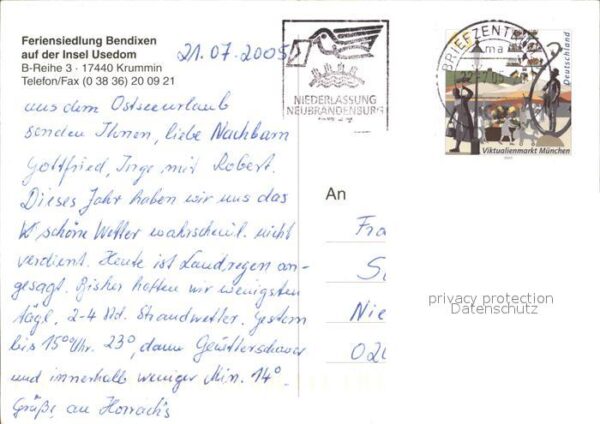 Feriensiedlung Bendixen
auf der Insel Usedom
B-Reihe 3 · 17440 Krummin
Telefon/Fax (0 38 36) 20 09 21
21.07.2005
aus dem Ostseeurlaub
senden Ihnen, liebe Nachbarn
Gottfried, Inge mit Robert.
Dieses Jahr haben wir uns das
schöne Wetter wahrscheinl. nicht
verdient. Heute ist Landregen an-
gesagt. Bisher hatten wir wenigstens
tägl. 2-4 Std. Strandwetter. Gestern
bis 15°° Uhr. 23°, dann Gewitterschauer
und innerhalb weniger Min. 14°.
Grüße an
NIEDERLASSUNG
NEUBRANDENBURG
BRIEFZENTRUM
ma
Deutschland
Viktualienmarkt München
An
Fra
Nie
020
privacy protection
Datenschutz